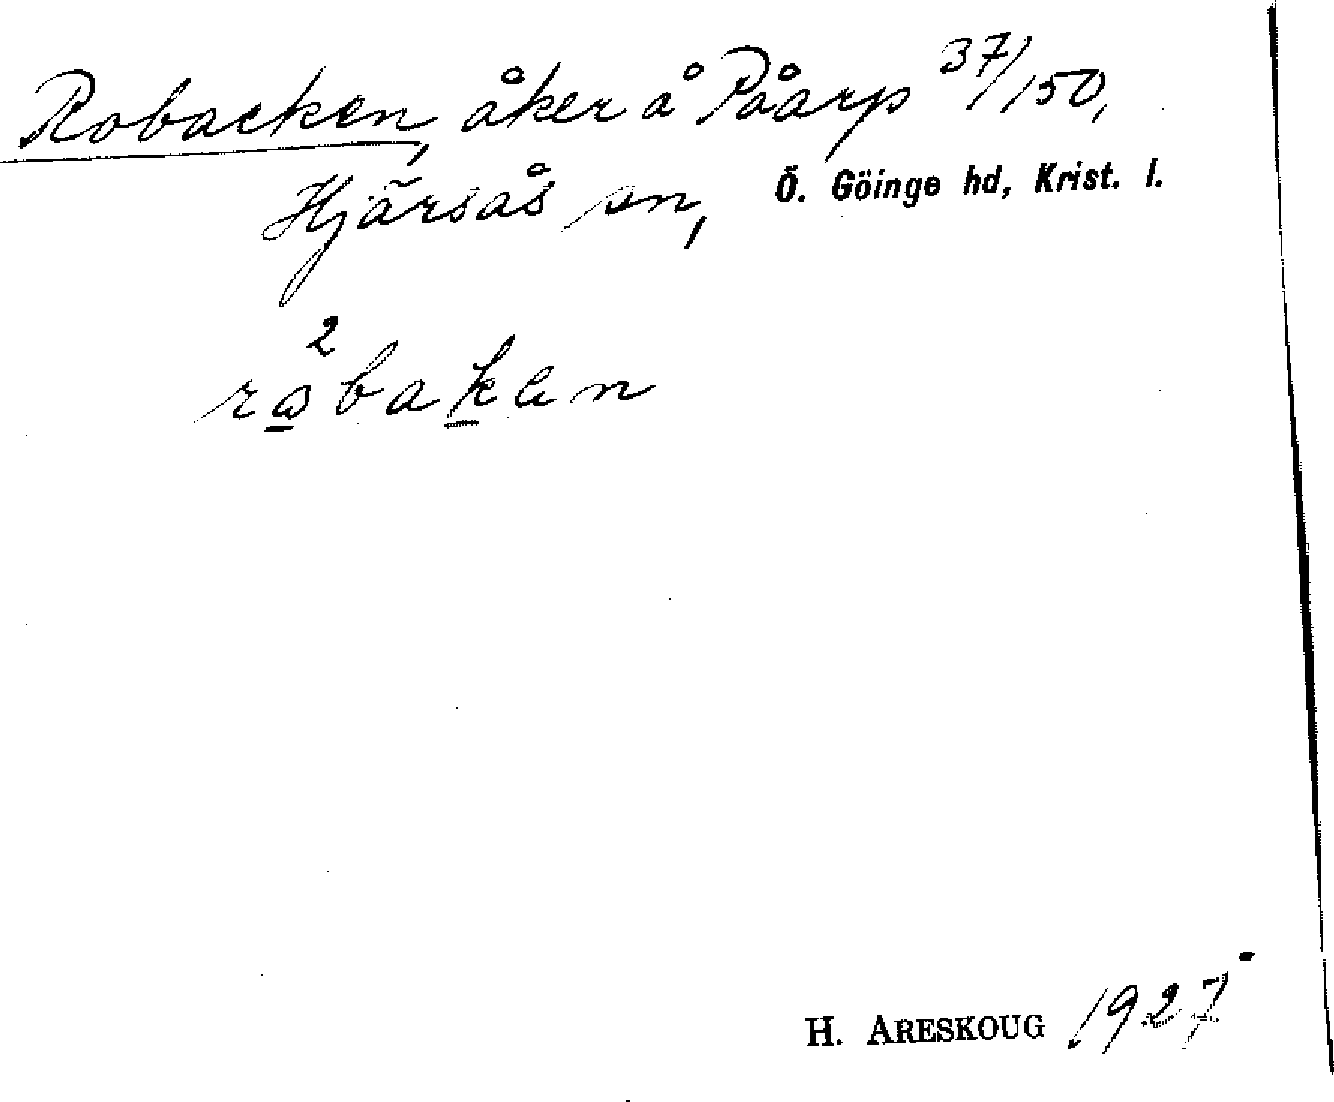 Robacken, åker å Påarp 37/150,
Hjärsås sn, Ö. Göinge hd, Krist. l.
2
råbaken
H. ARESKOUG 1927